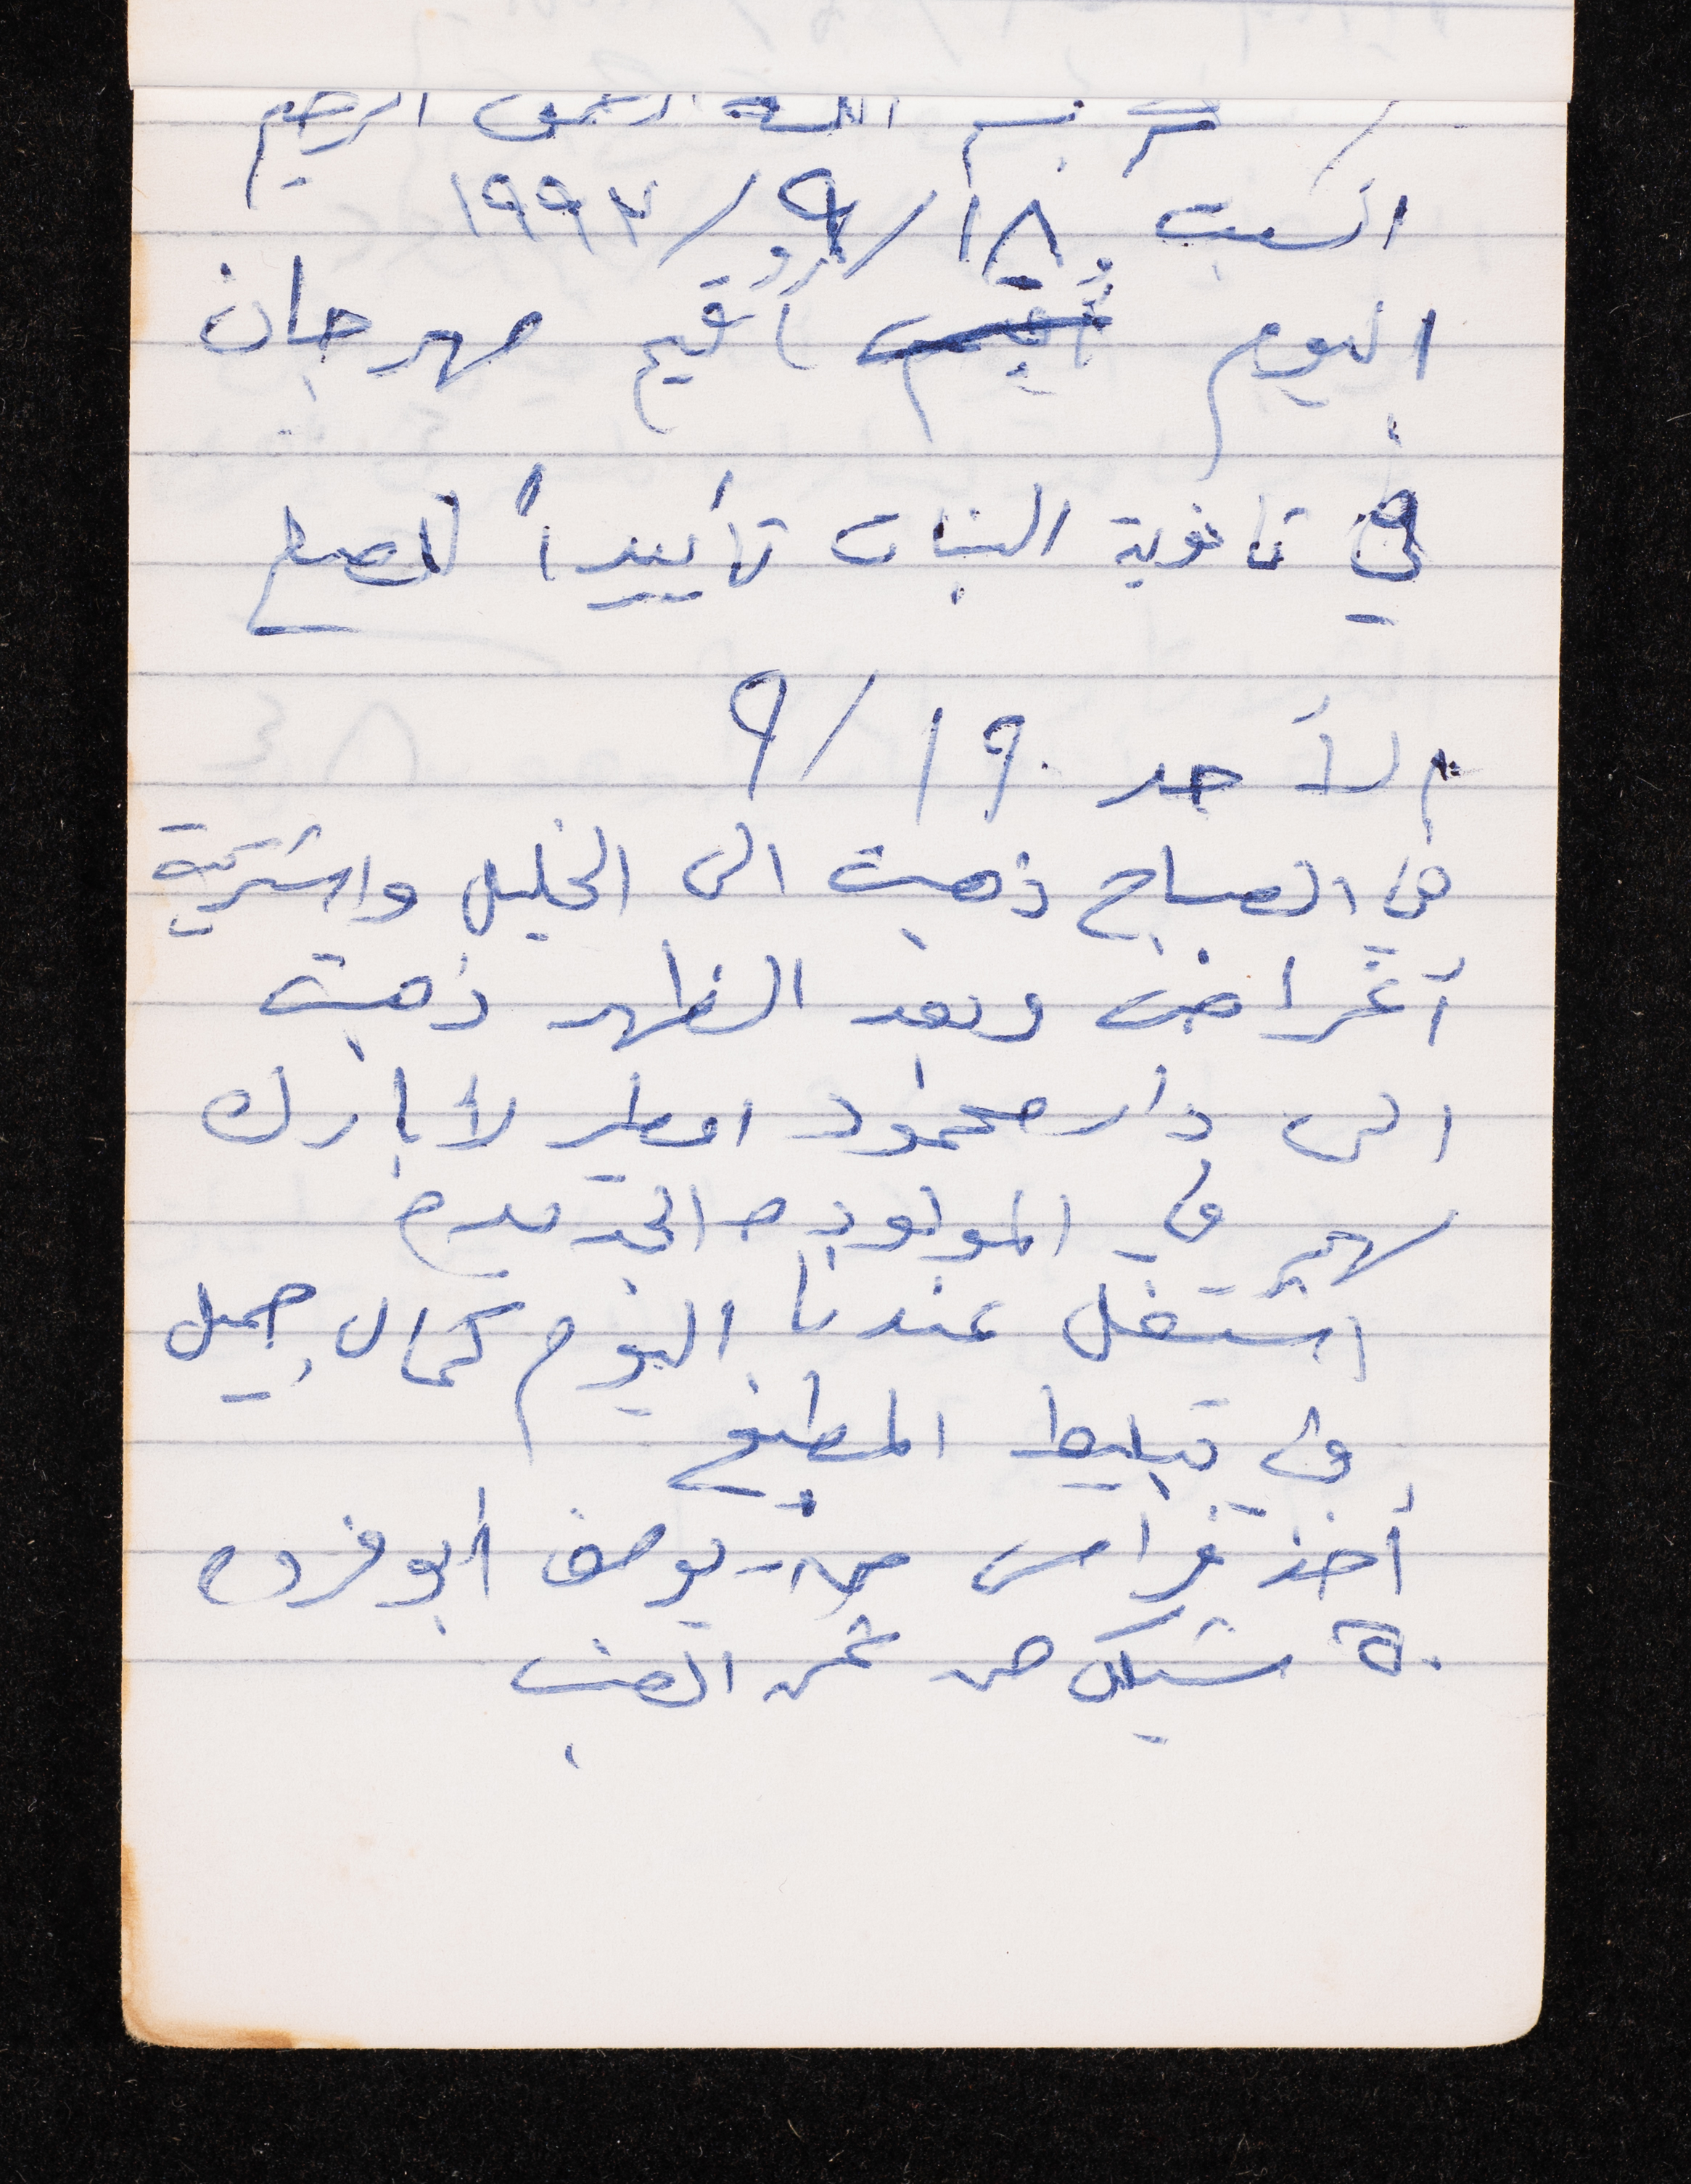 بسم الله الرحمن الرحيم
السبت ١٨/٩/١٩٩٣
اليوم أقيم مهرجان
في ثانوية البنات تأييداً للصلح
الأحد ١٩/٩
في الصباح ذهبت الى الخليل واشتريت
أغراض وبعد الظهر ذهبت
الى دار محمود امطير لأبارك
لهم في المولوده الجديده
اشتغل عندنا اليوم كمال جميل
في تبليط المطبخ
أخذ فراس من يوسف أبو فروه
٥٠ شيكل من ثمن العنب